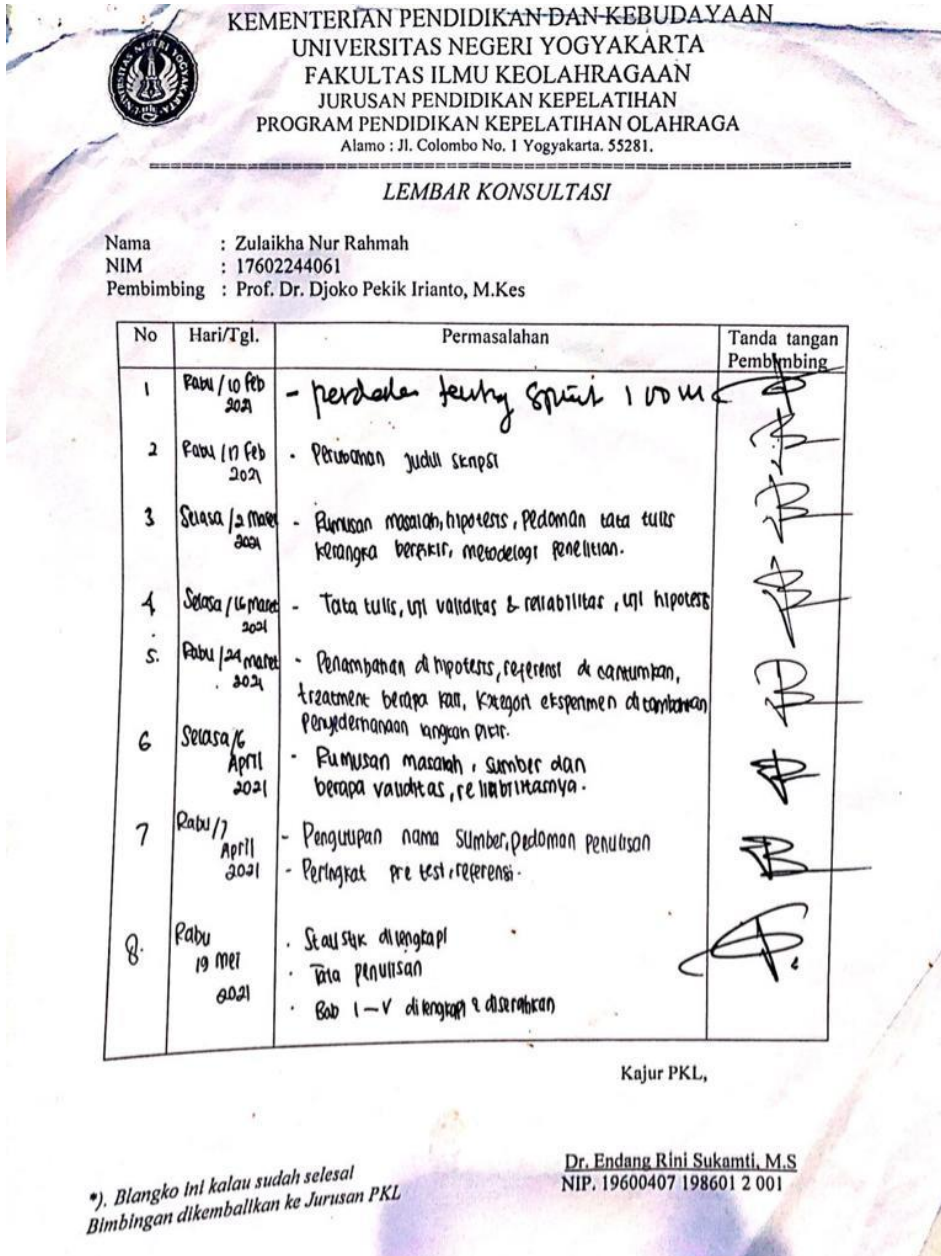 KEMENTERIAN PENDIDIKAN DAN KEBUDAYAAN
UNIVERSITAS NEGERI YOGYAKARTA
FAKULTAS ILMU KEOLAHRAGAAN
JURUSAN PENDIDIKAN KEPELATIHAN
PROGRAM PENDIDIKAN KEPELATIHAN OLAHRAGA
Alamo : Jl. Colombo No. 1 Yogyakarta. 55281.
LEMBAR KONSULTASI
Nama : Zulaikha Nur Rahmah
NIM : 17602244061
Pembimbing : Prof. Dr. Djoko Pekik Irianto, M.Kes
No Hari/Tgl. Permasalahan Tanda tangan
Pembimbing
1 Rabu / 10 Feb - sprint 100 m
2021
2 Rabu / 17 Feb - Perubahan judul skripsi
2021
3 Selasa / 2 maret - Rumusan masalah, hipotesis, Pedoman tata tulis
2021 kerangka berpikir, metodelogi penelitian.
4 Selasa / 16 maret - Tata tulis, uji validitas & reliabilitas, uji hipotesis
2021
5. Rabu / 24 maret - Penambahan di hipotesis, referensi di cantumkan,
2021 treatment berapa kali, kategori eksperimen di tambahkan
Penyederhanaan pikir.
6 Selasa / 6 - Rumusan masalah, sumber dan
April berapa validitas, reliabilitasnya.
2021
7 Rabu / 7 - Pengutipan nama sumber, pedoman penulisan
April
2021 - Peringkat pre test, referensi.
8. Rabu - Statistik dilengkapi
19 mei - Tata penulisan
2021 - Bab I - V dilengkapi & diserahkan
Kajur PKL,
Dr. Endang Rini Sukamti, M.S
NIP. 19600407 198601 2 001
*). Blangko ini kalau sudah selesai
Bimbingan dikembalikan ke Jurusan PKL